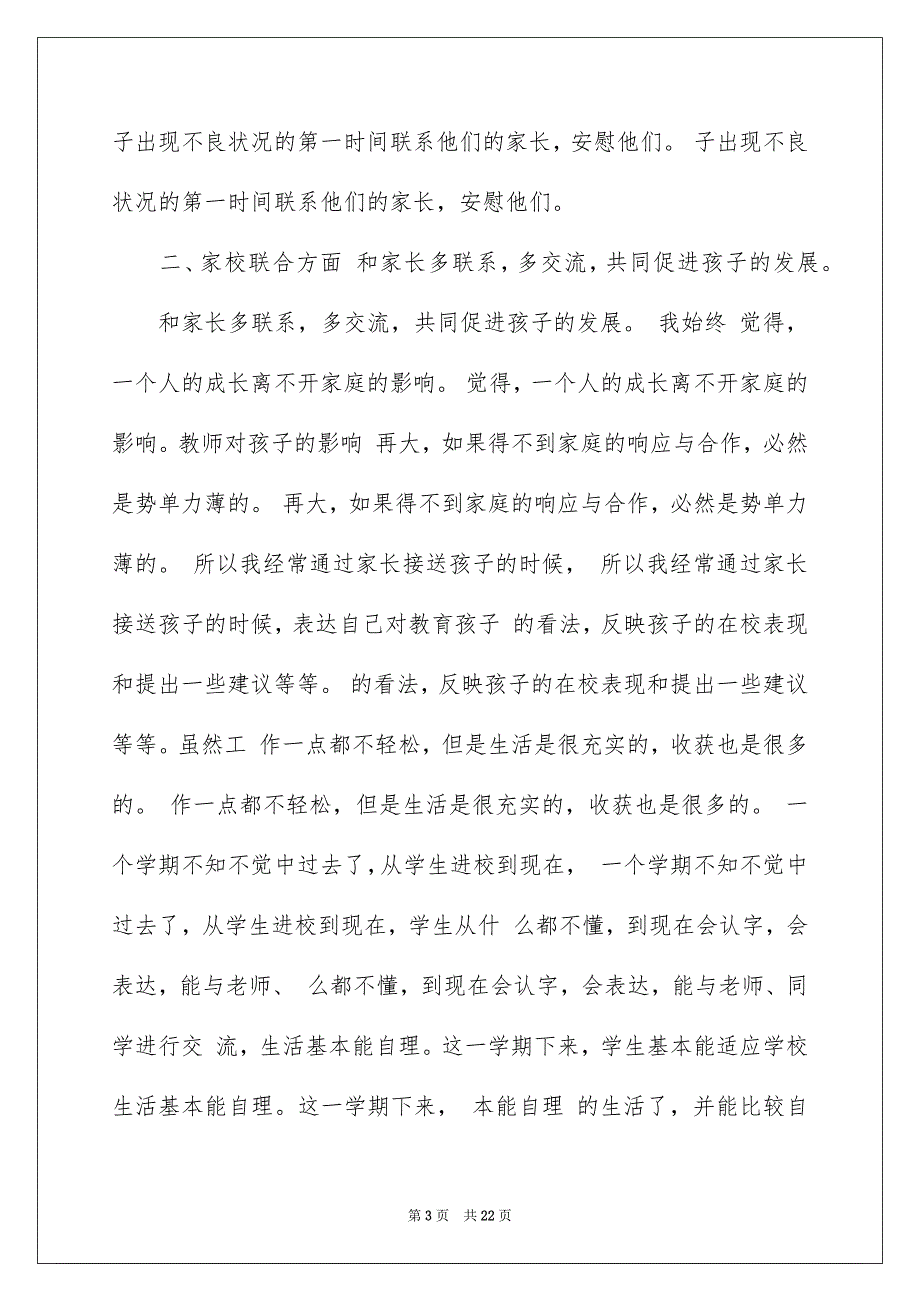 子出现不良状况的第一时间联系他们的家长，安慰他们。 子出现不良
状况的第一时间联系他们的家长，安慰他们。
二、家校联合方面 和家长多联系，多交流，共同促进孩子的发展。
和家长多联系，多交流，共同促进孩子的发展。 我始终 觉得，
一个人的成长离不开家庭的影响。 觉得，一个人的成长离不开家庭的
影响。教师对孩子的影响 再大，如果得不到家庭的响应与合作，必然
是势单力薄的。 再大，如果得不到家庭的响应与合作，必然是势单力
薄的。 所以我经常通过家长接送孩子的时候， 所以我经常通过家长
接送孩子的时候，表达自己对教育孩子 的看法，反映孩子的在校表现
和提出一些建议等等。 的看法，反映孩子的在校表现和提出一些建议
等等。虽然工 作一点都不轻松，但是生活是很充实的，收获也是很多
的。 作一点都不轻松，但是生活是很充实的，收获也是很多的。 一
个学期不知不觉中过去了，从学生进校到现在， 一个学期不知不觉中
过去了，从学生进校到现在，学生从什 么都不懂，到现在会认字，会
表达，能与老师、 么都不懂，到现在会认字，会表达，能与老师、同
学进行交 流，生活基本能自理。这一学期下来，学生基本能适应学校
生活基本能自理。这一学期下来， 本能自理 的生活了，并能比较自
第 3 页 共 22 页